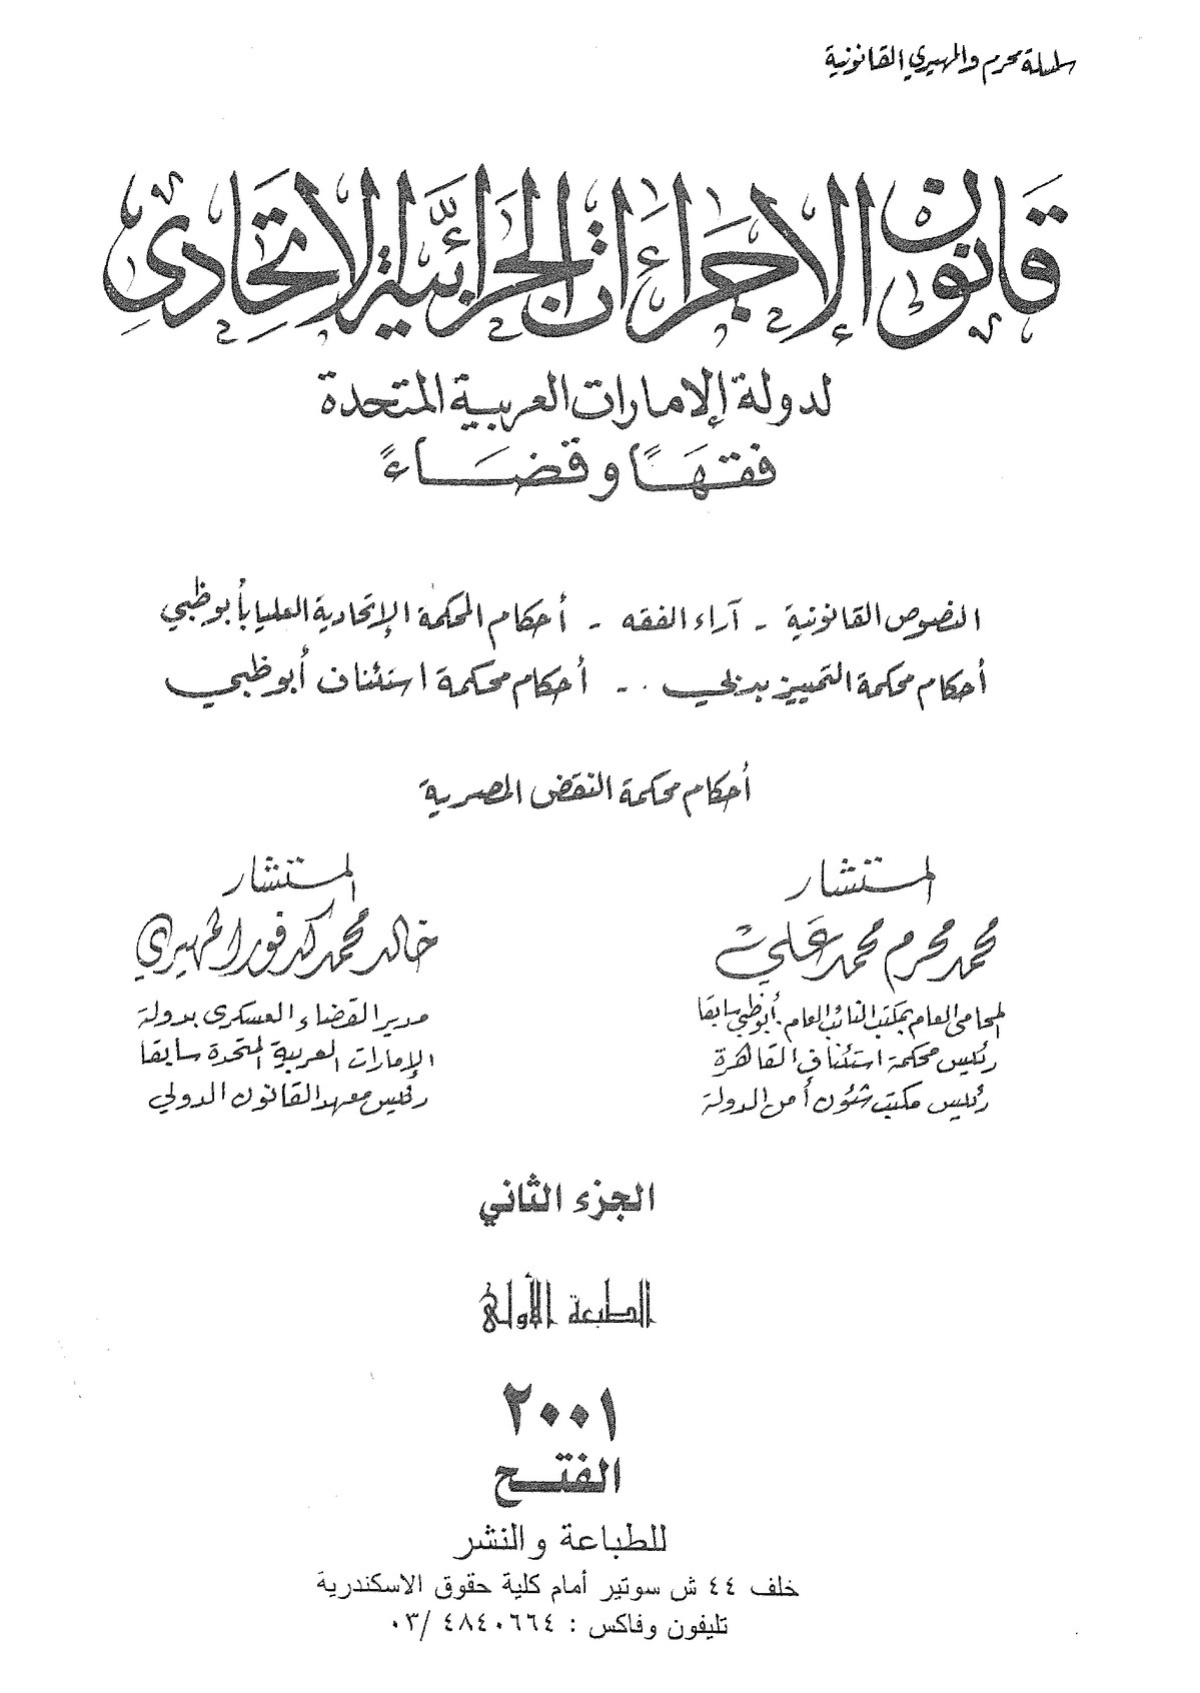 سلسلة محرم والمهيري القانونية
قانون الإجراءات الجزائية الاتحادى
لدولة الإمارات العربية المتحدة
فقهًا وقضاءً
النصوص القانونية - آراء الفقه - أحكام المحكمة الإتحادية العليا بأبوظبي
أحكام محكمة التمييز بدبي .. - أحكام محكمة استئناف أبوظبي
أحكام محكمة النقض المصرية
المستشار
محمد محرم محمد على
المحامى العام بمكتب النائب العام. أبوظبي سابقا
رئيس محكمة استئناف القاهرة
رئيس مكتب شئون أمن الدولة
المستشار
خالد محمد كدفور المهيري
مدير القضاء العسكرى بدولة
الإمارات العربية المتحدة سابقا
رئيس معهد القانون الدولي
الجزء الثاني
الطبعة الأولى
٢٠٠١
الفتح
للطباعة والنشر
خلف ٤٤ ش سوتير أمام كلية حقوق الاسكندرية
تليفون وفاكس : ٤٨٤٠٦٦٤ /٠٣